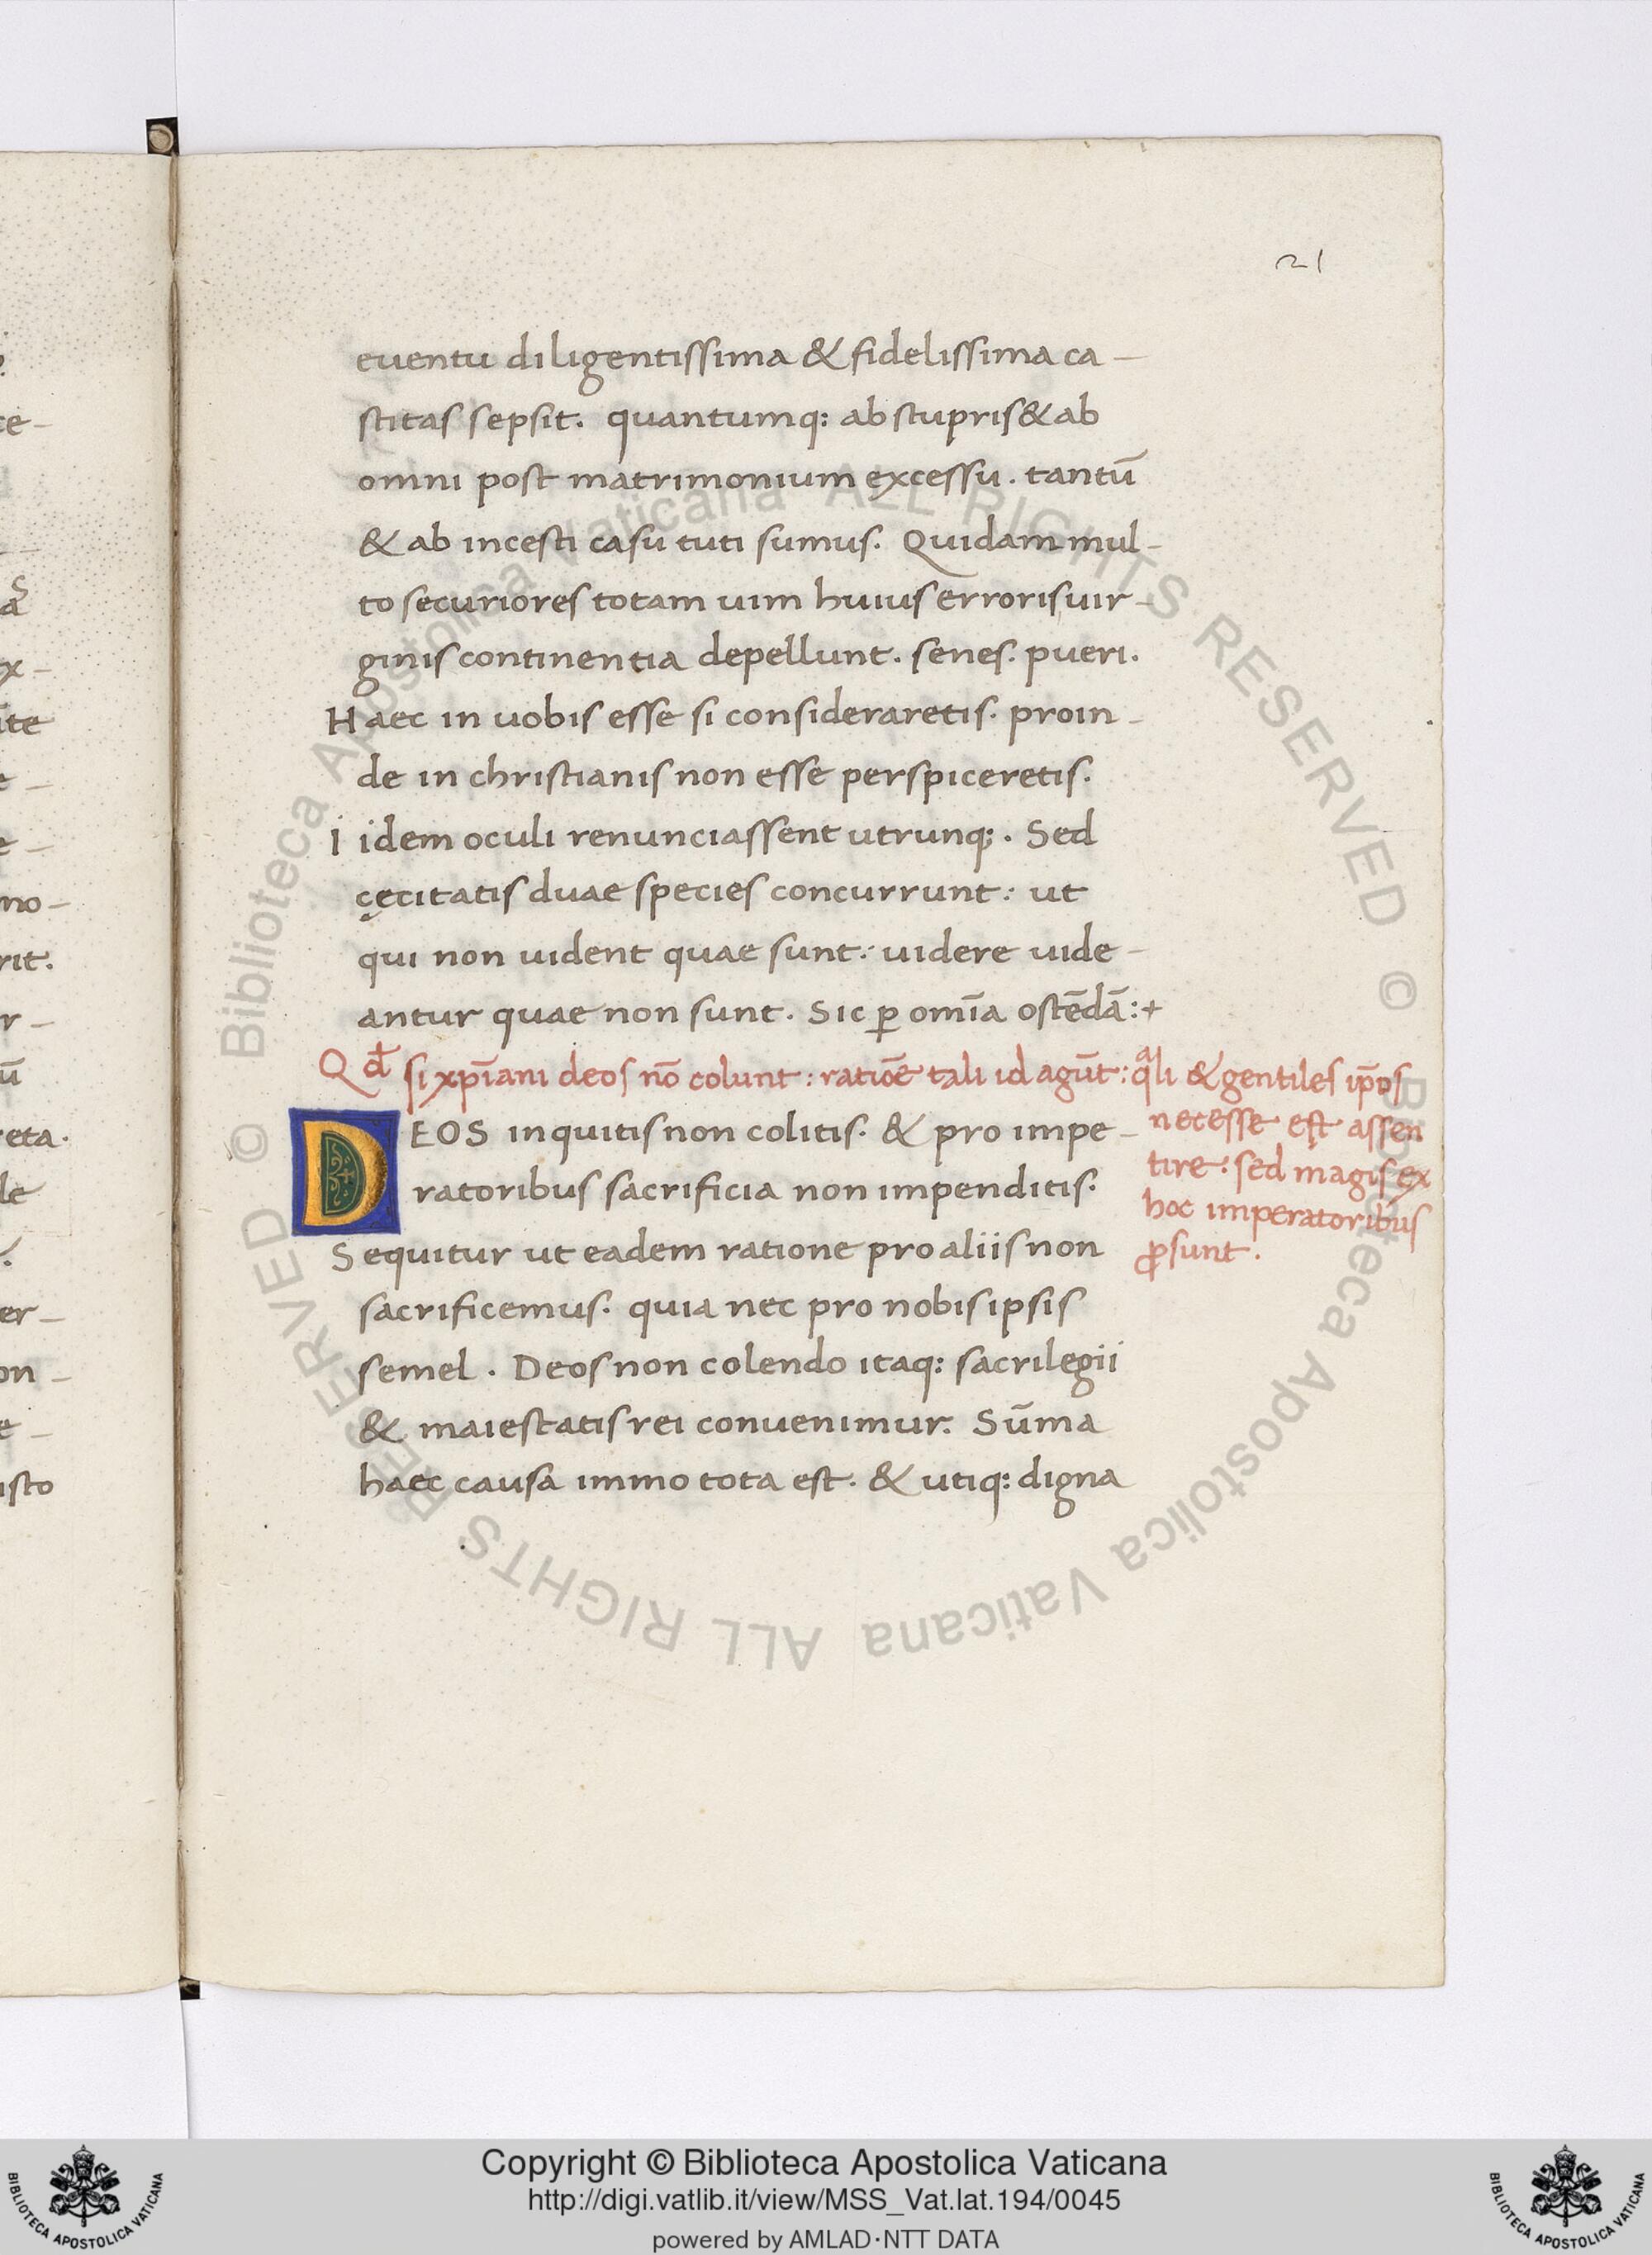 21
euentu diligentissima & fidelissima ca-
stitas sepsit. quantumq: ab stupris & ab
omni post matrimonium excessu. tantū
& ab incesti casu tuti sumus. Quidam mul-
to securiores totam uim huius erroris uir-
ginis continentia depellunt. senes. pueri.
Haec in uobis esse si consideraretis. proin-
de in christianis non esse perspiceretis.
Iidem oculi renunciassent utrunq;. Sed
cęcitatis duae species concurrunt: ut
qui non uident quae sunt: uidere uide-
antur quae non sunt. Sic ꝑ omīa ostēdā:+
Qđ si xp̄iani deos nō colunt: ratiōe tali id agūt: qͣli & gentiles ip̄os
necesse est assen
tire: sed magis ex
hoc imperatoribus
ꝓsunt.
DEOS inquitis non colitis. & pro impe-
ratoribus sacrificia non impenditis.
Sequitur ut eadem ratione pro aliis non
sacrificemus. quia nec pro nobis ipsis
semel. Deos non colendo itaq: sacrilegii
& maiestatis rei conuenimur. Sūma
haec causa immo tota est. & utiq: digna
© Biblioteca Apostolica Vaticana ALL RIGHTS RESERVED © Biblioteca Apostolica Vaticana ALL RIGHTS RESERVED
Copyright © Biblioteca Apostolica Vaticana
http://digi.vatlib.it/view/MSS_Vat.lat.194/0045
powered by AMLAD·NTT DATA
BIBLIOTECA APOSTOLICA VATICANA
BIBLIOTECA APOSTOLICA VATICANA